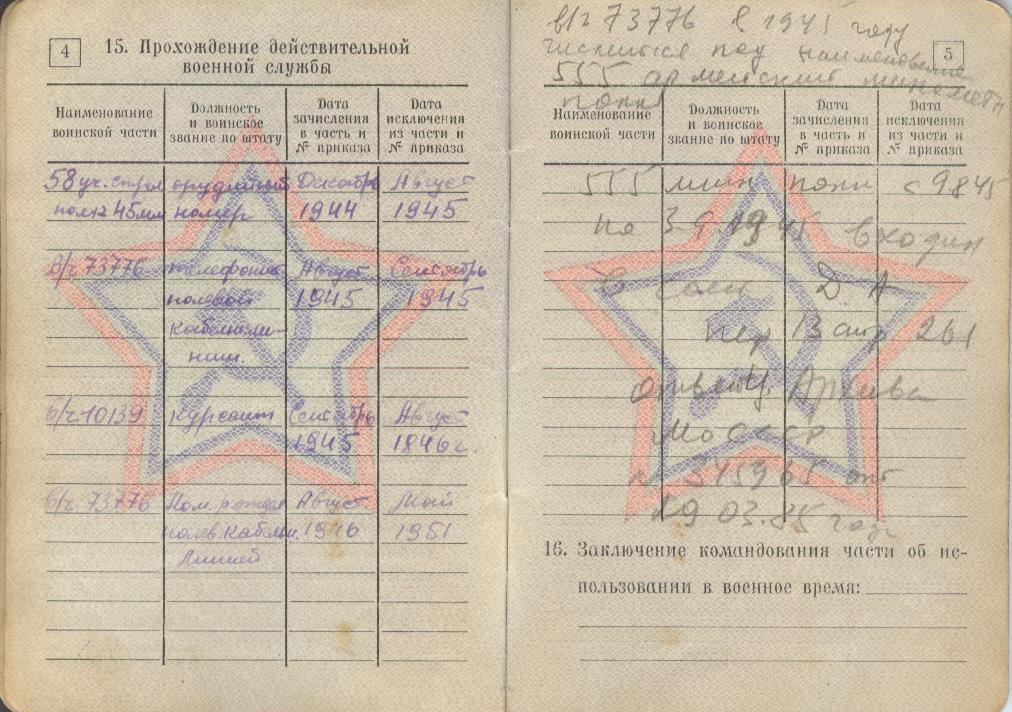 4
15. Прохождение действительной
военной службы
Наименование
воинской части
Должность
и воинское
звание по штату
Дата
зачисления
в часть и
№ приказа
Дата
исключения
из части и
№ приказа
58 уч. стрел орудийный Декабрь Август
полка 45мм номер 1944 1945
в/ч 73776 телефонист Август Сентябрь
полевой 1945 1945
кабельн. ли-
нии.
в/ч 10139 курсант Сентябрь Август
1945 1846 г.
в/ч 73776 Пом. р. отдел Август Май
полев. кабельн. 1946 1951
Линией
в/ч 73776 в 1945 году
числится под наименование
555 армейский миномётн
полк
5
Наименование
воинской части
Должность
и воинское
звание по штату
Дата
зачисления
в часть и
№ приказа
Дата
исключения
из части и
№ приказа
555 мин полк с 9845
по 3 9.1945 входил
В сост Д А
пер 13 апр 261
ответ Ц Архива
Мо СССР
№ 345965 от
19 03.85 году
16. Заключение командования части об ис-
пользовании в военное время: